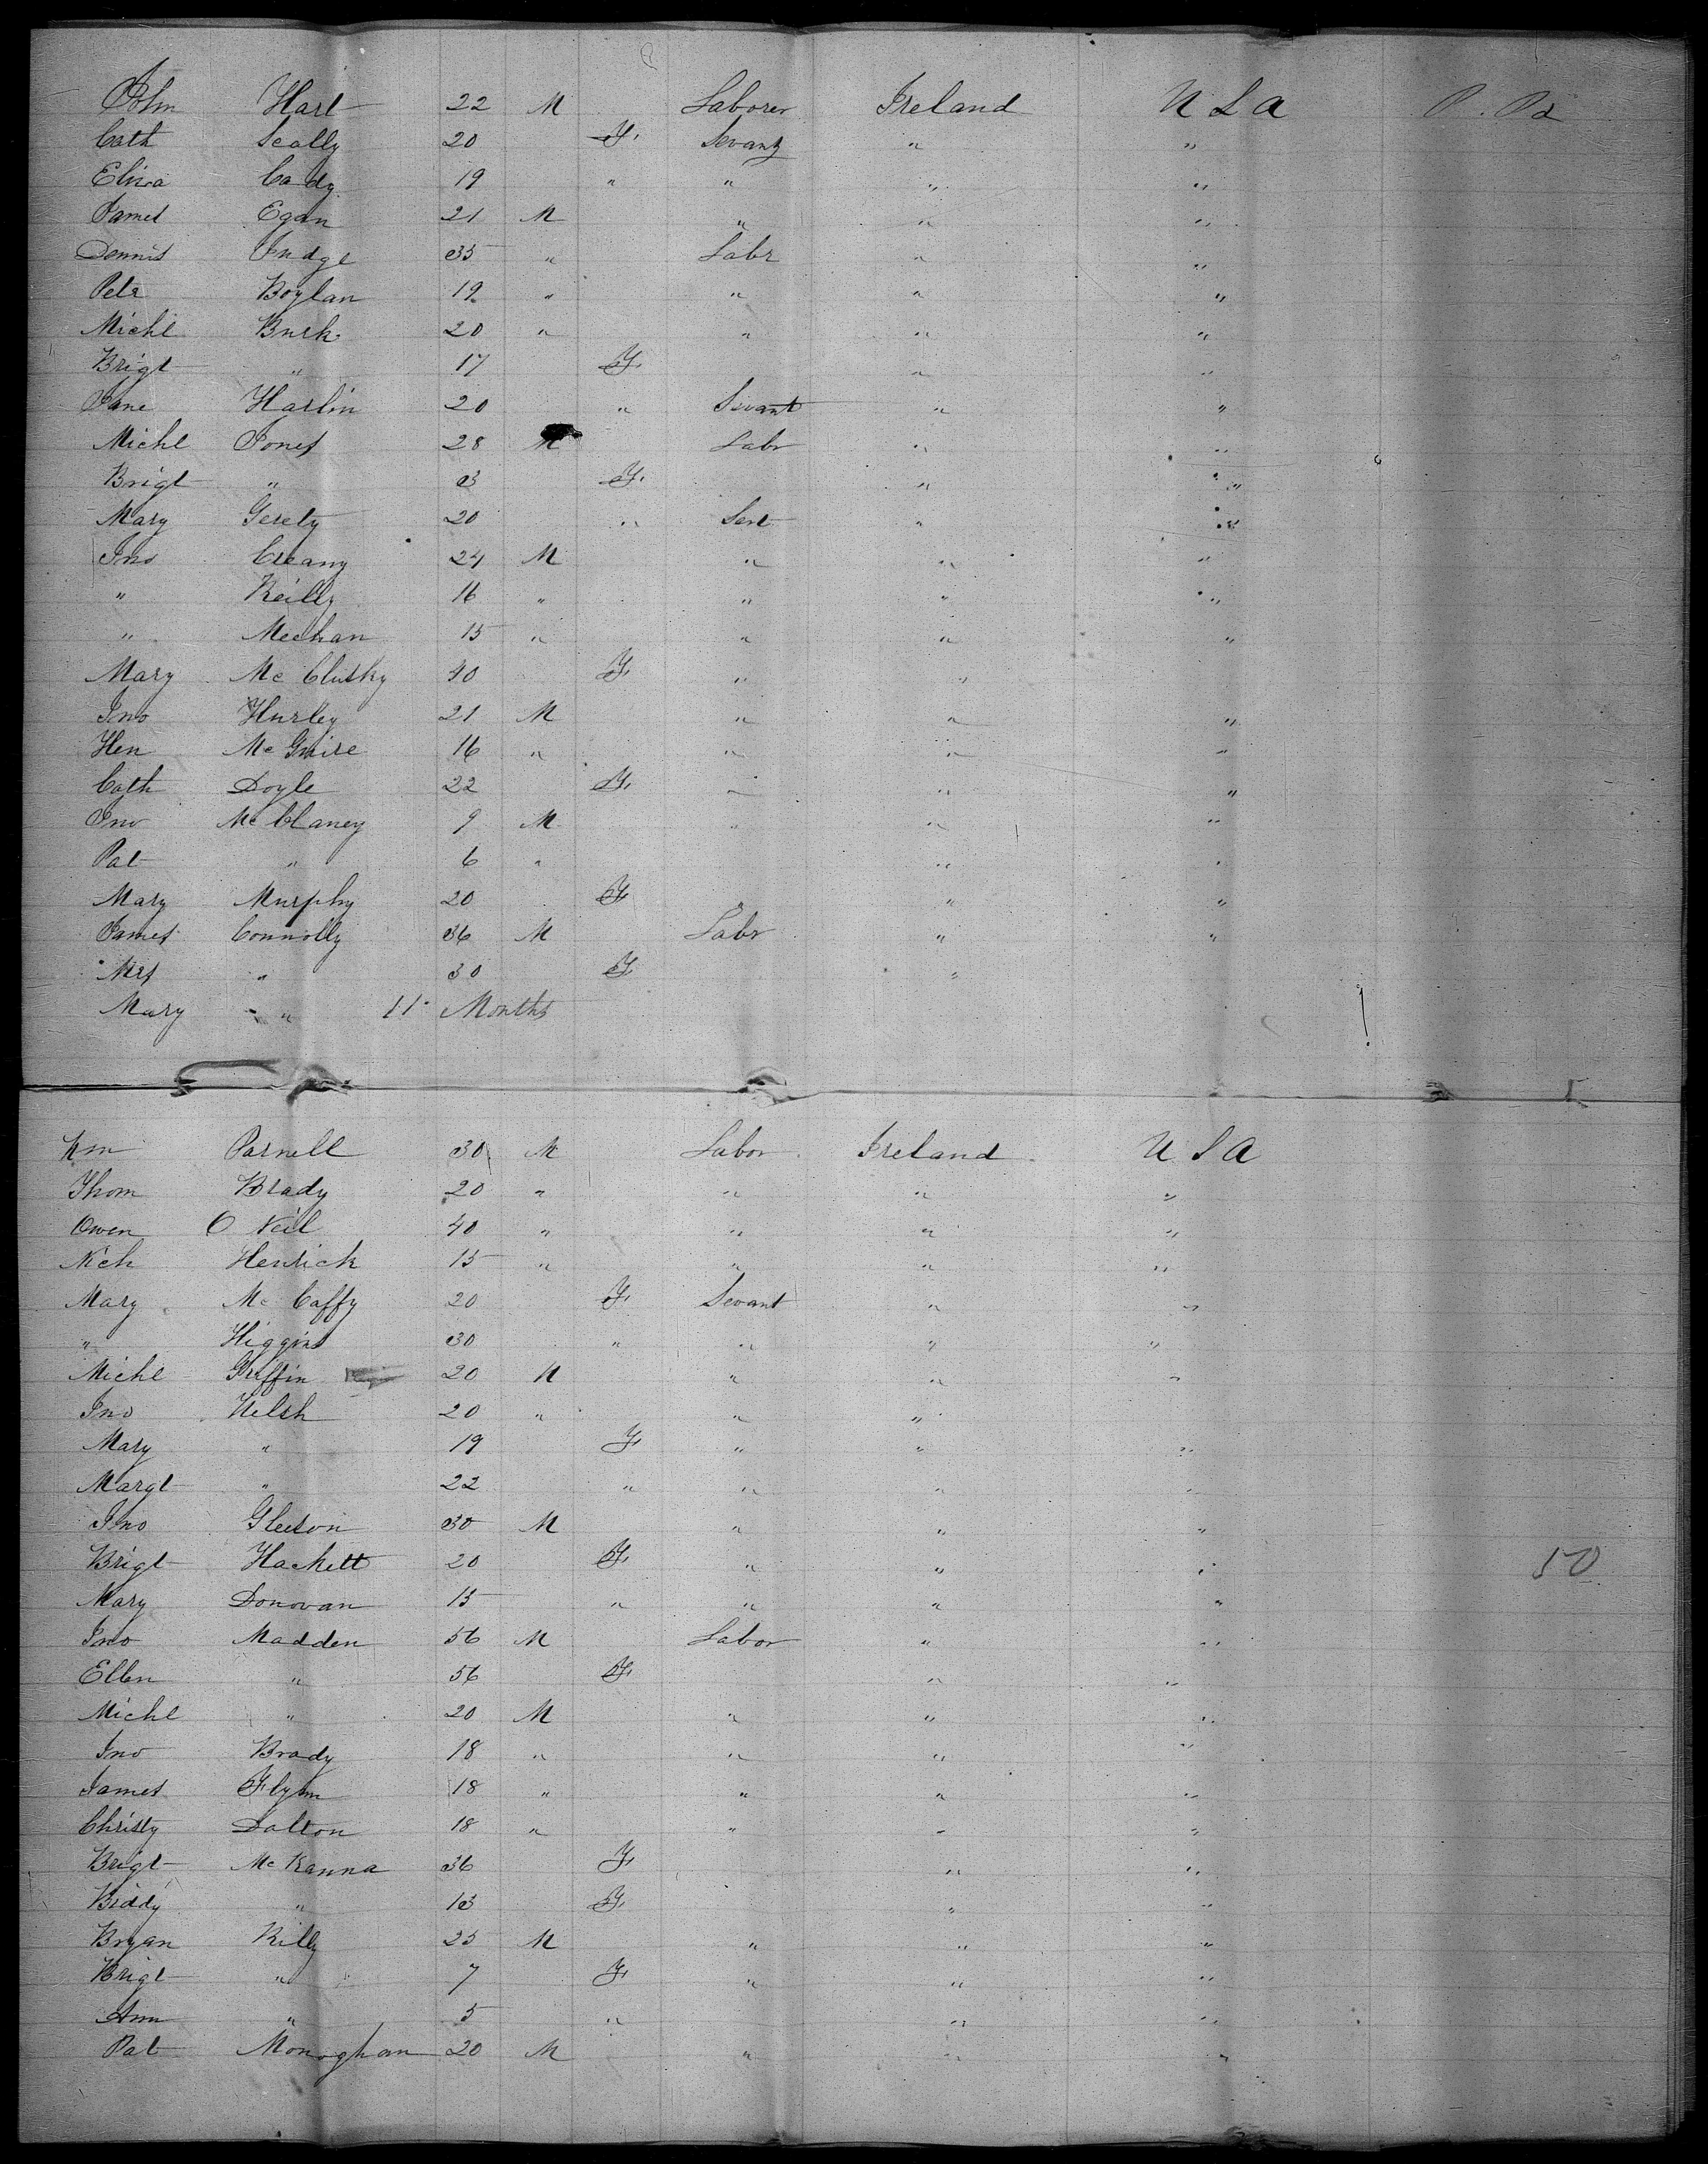 John Hart 22 M Laborer Ireland U S A P. Pd
Cath Scally 20 F. Sevant " "
Eliza Cady 19 " " " "
James Egan 21 M " " "
Dennis Judge 35 " Labr " "
Petr Boylan 19 " " " "
Michl Burk 20 " " " "
Brigt " 17 F. " "
Jane Harlin 20 " Sevant " "
Michl Jones 28 M Labr " "
Brigt " 3 F. " "
Mary Gerety 20 " Servt " "
Jno Creany 24 M " " "
" Reilly 16 " " " "
" Meehan 15 " " " "
Mary Mc Clusky 40 F. " "
Jno Hurley 21 M " " "
Hen Mc Guire 16 " " " "
Cath Doyle 22 F. " " "
Jno Mc Claney 9 M " " "
Pat " 6 " " "
Mary Murphy 20 F. " " "
James Connolly 36 M Labr " "
Mrs " 30 F. "
Mary " 11 Months
Parnell 30 M Labor Ireland U S A
Thom Brady 20 " " " "
Owen O Neil 40 " " " "
Nich Henrick 15 " " " "
Mary Mc Caffy 20 F. Sevant " "
" Higgins 30 " " " "
Michl Griffin 20 M " " "
Jno Welsh 20 " " "
Mary " 19 F. " " "
Margt " 22 " " " "
Jno Gleeson 30 M " " "
Brigt Hackett 20 F. " " " 50
Mary Donovan 15 " " " "
Jno Madden 56 M Labor " "
Ellen " 56 F. " "
Michl " 20 M " " "
Jno Brady 18 " " " "
James Flynn 18 " " " "
Christy Dalton 18 " " " "
Brigt Mc Kanna 36 F. " "
Biddy " 13 F. " "
Bryan Rilly 25 M " " "
Brigt " 7 F. " " "
Ann " 5 " " "
Pat Monoghan 20 M " " "